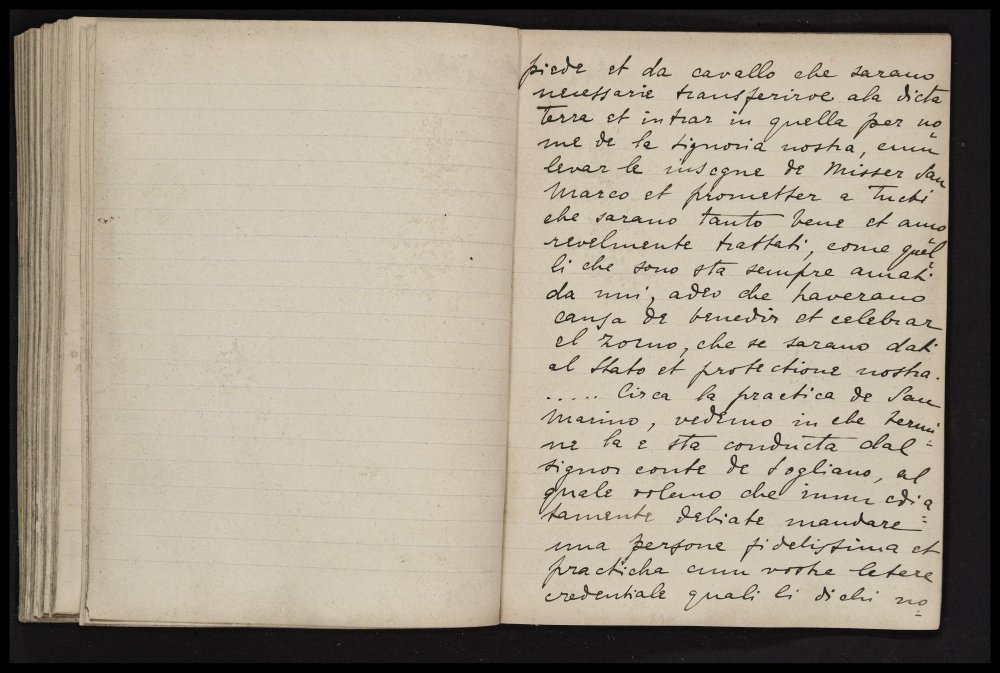 piede et da cavallo che sarano
necessarie transferirve ala dicta
terra et intrar in quella per no=
me de la signoria nostra, cum
levar le insegne de Misser San
Marco et prometter a tucti
che sarano tanto bene et amo=
revelmente trattati, come quel=
li che sono sta sempre amati
da nui, adeo che haverano
causa de benedir et celebrar
el zorno, che se sarano dati
al Stato et protectione nostra.
..... Circa la practica de San
Marino, vedemo in che termi=
ne la e sta conducta dal
signor conte de Sogliano, al
quale volemo che immedia=
tamente debiate mandare
una persone fidelissima et
practicha cum vostre letere
credentiale quali li dichi no=